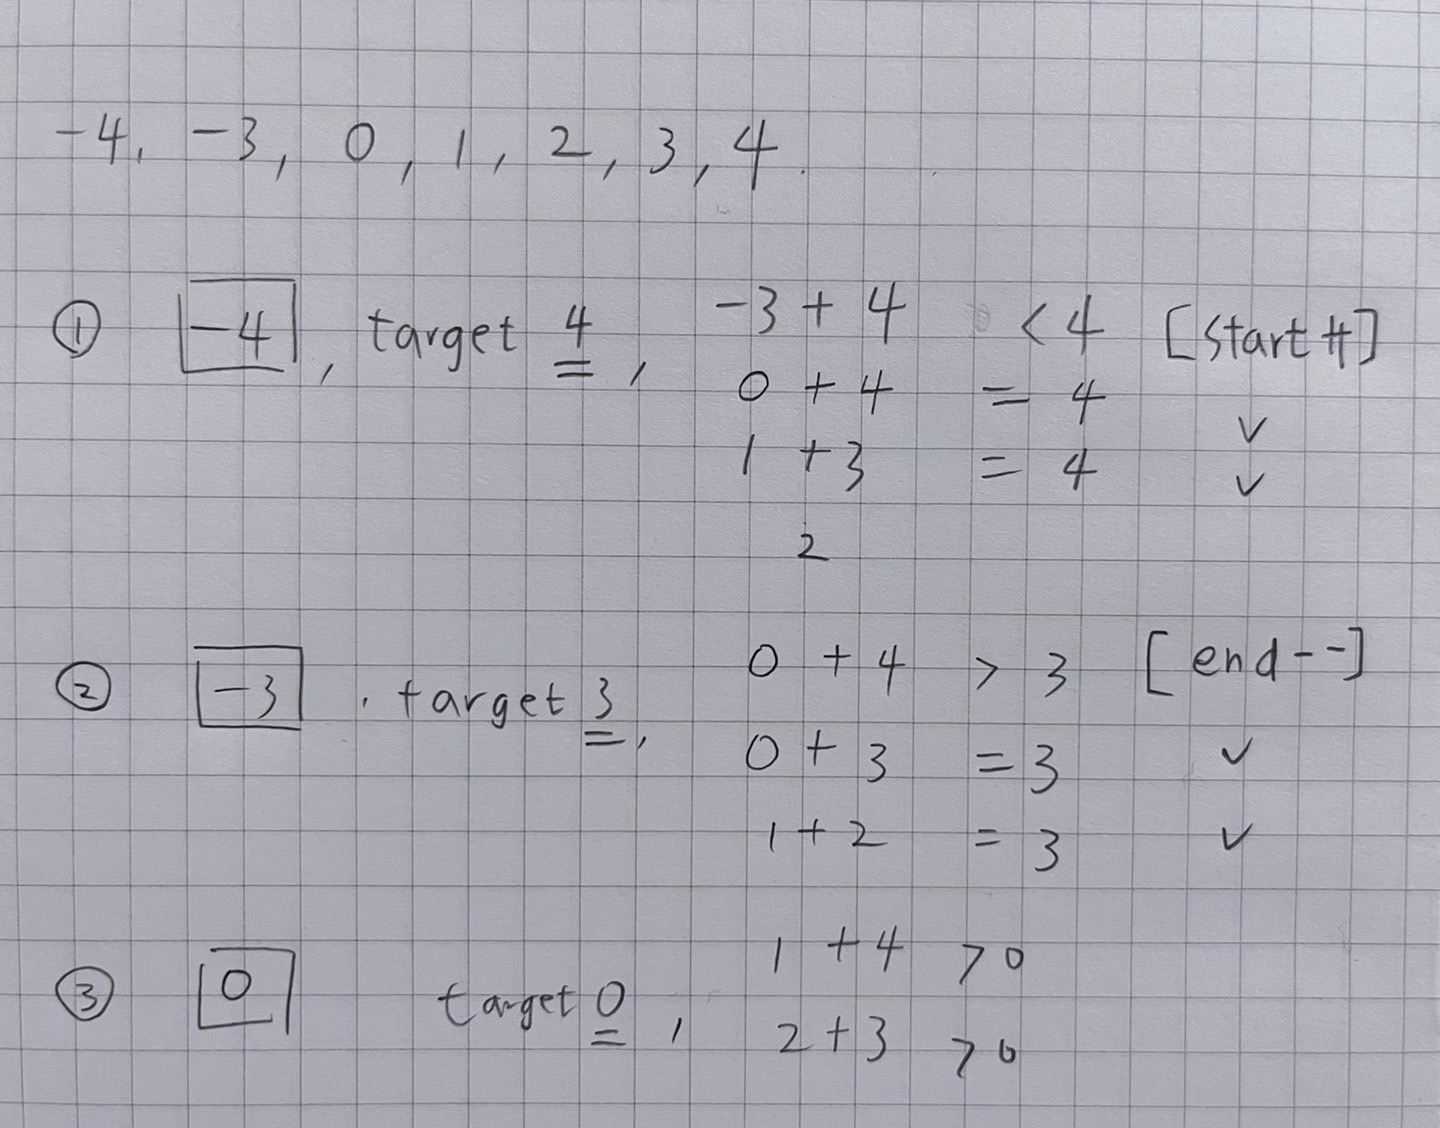 -4, -3, 0, 1, 2, 3, 4.
① -4, target 4, -3 + 4 < 4 [start++]
0 + 4 = 4 ✓
1 + 3 = 4 ✓
2
② -3. target 3, 0 + 4 > 3 [end--]
0 + 3 = 3 ✓
1 + 2 = 3 ✓
③ 0 target 0, 1 + 4 > 0
2 + 3 > 0